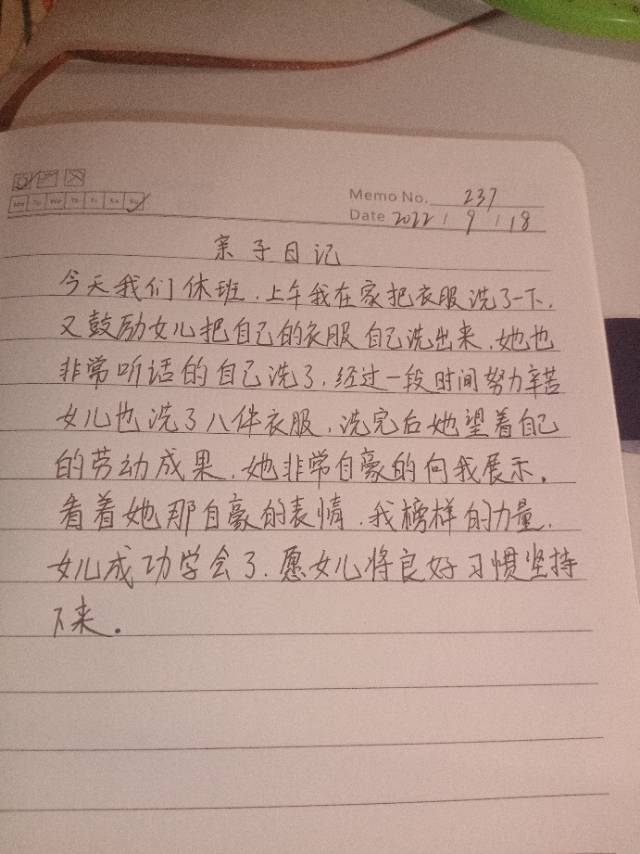 Memo No. 237
Date 2022 / 9 / 18
亲子日记
今天我们休班,上午我在家把衣服洗了一下,
又鼓励女儿把自己的衣服自己洗出来,她也
非常听话的自己洗了,经过一段时间努力辛苦
女儿也洗了八件衣服,洗完后她望着自己
的劳动成果,她非常自豪的向我展示,
看着她那自豪的表情,我榜样的力量,
女儿成功学会了.愿女儿将良好习惯坚持
下来.